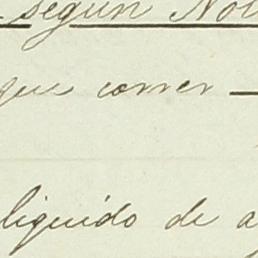 segun Not
que corren
liquido de a